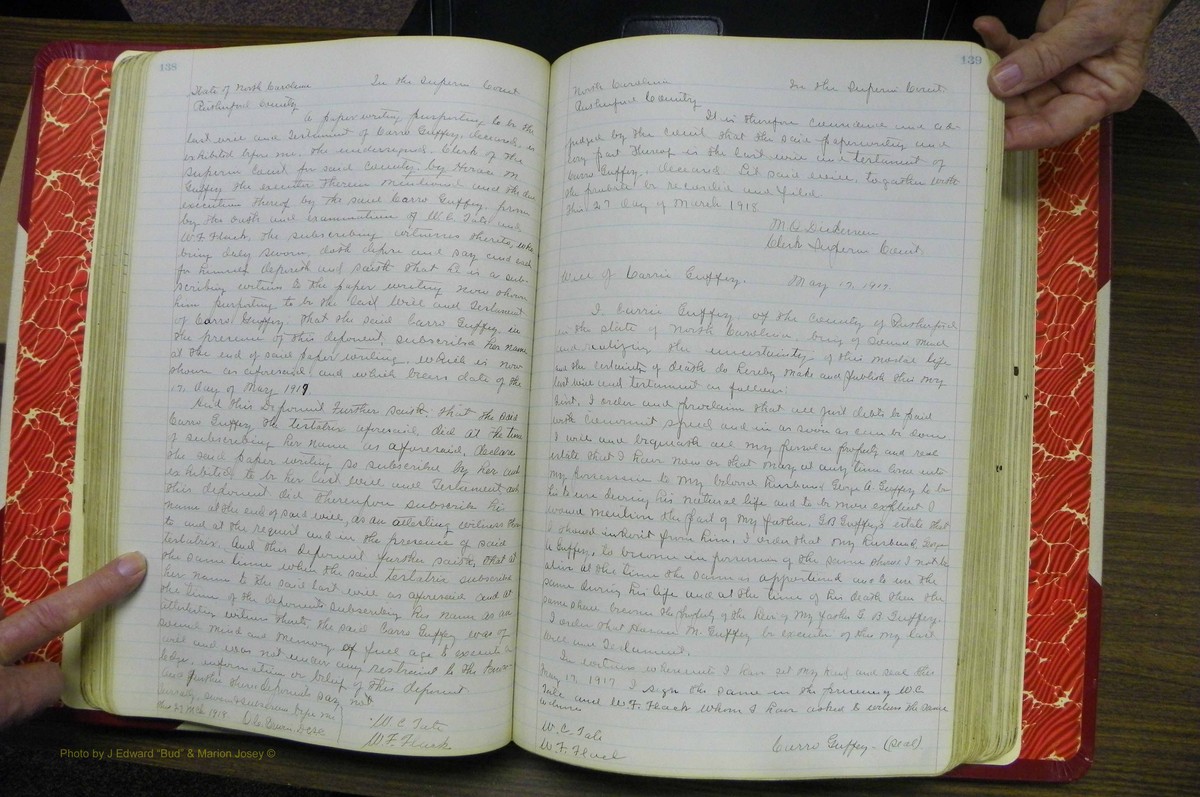 138
State of North Carolina In the Superior Court
Rutherford County
A paper writing purporting to be the
last will and Testament of Carro Guffey, deceased, is
exhibited before me, the undersigned, Clerk of the
Superior Court for said County, by Hiram M.
Guffey the executor therein mentioned and the due
execution thereof by the said Carro Guffey, proven
by the oath and examination of W.C. Tate and
W.F. Flack, the subscribing witnesses thereto, who
being duly sworn, doth depose and say and each
for himself deposeth and saith that he is a sub-
scribing witness to the paper writing now shown
him purporting to be the last will and Testament
of Carro Guffey. That the said Carro Guffey, in
the presence of this deponent, subscribed her name
at the end of said paper writing, which is now
shown as aforesaid, and which bears date of the
17 day of May 1917.
And this Deponent Further saith, that the said
Carro Guffey the testatrix aforesaid, did at the time
of subscribing her name as aforesaid, declare
the said paper writing so subscribed by her and
exhibited to be her last will and Testament, and
this deponent did thereupon subscribe his
name at the end of said will, as an attesting witness there
to and at the request and in the presence of said
testatrix. And this deponent further saith, that at
the same time when the said testatrix subscribed
her name to the said last will as aforesaid and at
the time of the deponents subscribing his name as an
attesting witness thereto, the said Carro Guffey was of
sound mind and memory of full age to execute a
will and was not under any restraint to the know-
ledge, information or belief of this deponent
and further these deponents say not
severally sworn & subscribed before me
W.C. Tate
W.F. Flack
139
North Carolina In the Superior Court
Rutherford County
It is therefore considered and ad-
judged by the Court that the said paperwriting and
every part thereof is the last will and testament of
Carro Guffey, deceased. Let said will, together with
the probate be recorded and filed
This 27 day of March 1918
M.O. Dickerson
Clerk Superior Court
Will of Carrie Guffey. May 17, 1917.
I Carrie Guffey, of the County of Rutherford
in the state of North Carolina, being of sound mind
and realizing the uncertainty of this mortal life
and the certainty of death do hereby make and publish this my
last will and testament as follows:
First, I order and proclaim that all just debts be paid
with convenient speed and in as soon as can be done.
I will and bequeath all my personal property and real
estate that I have now or that may at any time come into
my possession to my beloved husband George A. Guffey to be
his to use during his natural life and to be more explicit I
would mention the part of my father, G.B. Guffey's estate that
I should inherit from him. I order that my husband, George
A. Guffey, to become in possession of the same should I not be
alive at the time the same is apportioned and to use the
same during his life and at the time of his death then the
same shall become the property of the heirs of my father G. B. Guffey.
I order that Hiram M. Guffey be executor of this my last
will and Testament.
In witness whereof I have set my hand and seal this
May 17, 1917. I sign the same in the presence W.C.
Tate and W.F. Flack whom I have asked to witness the same
witness
W.C. Tate
W.F. Flack Carro Guffey (Seal)
Photo by J Edward "Bud" & Marion Josey ©